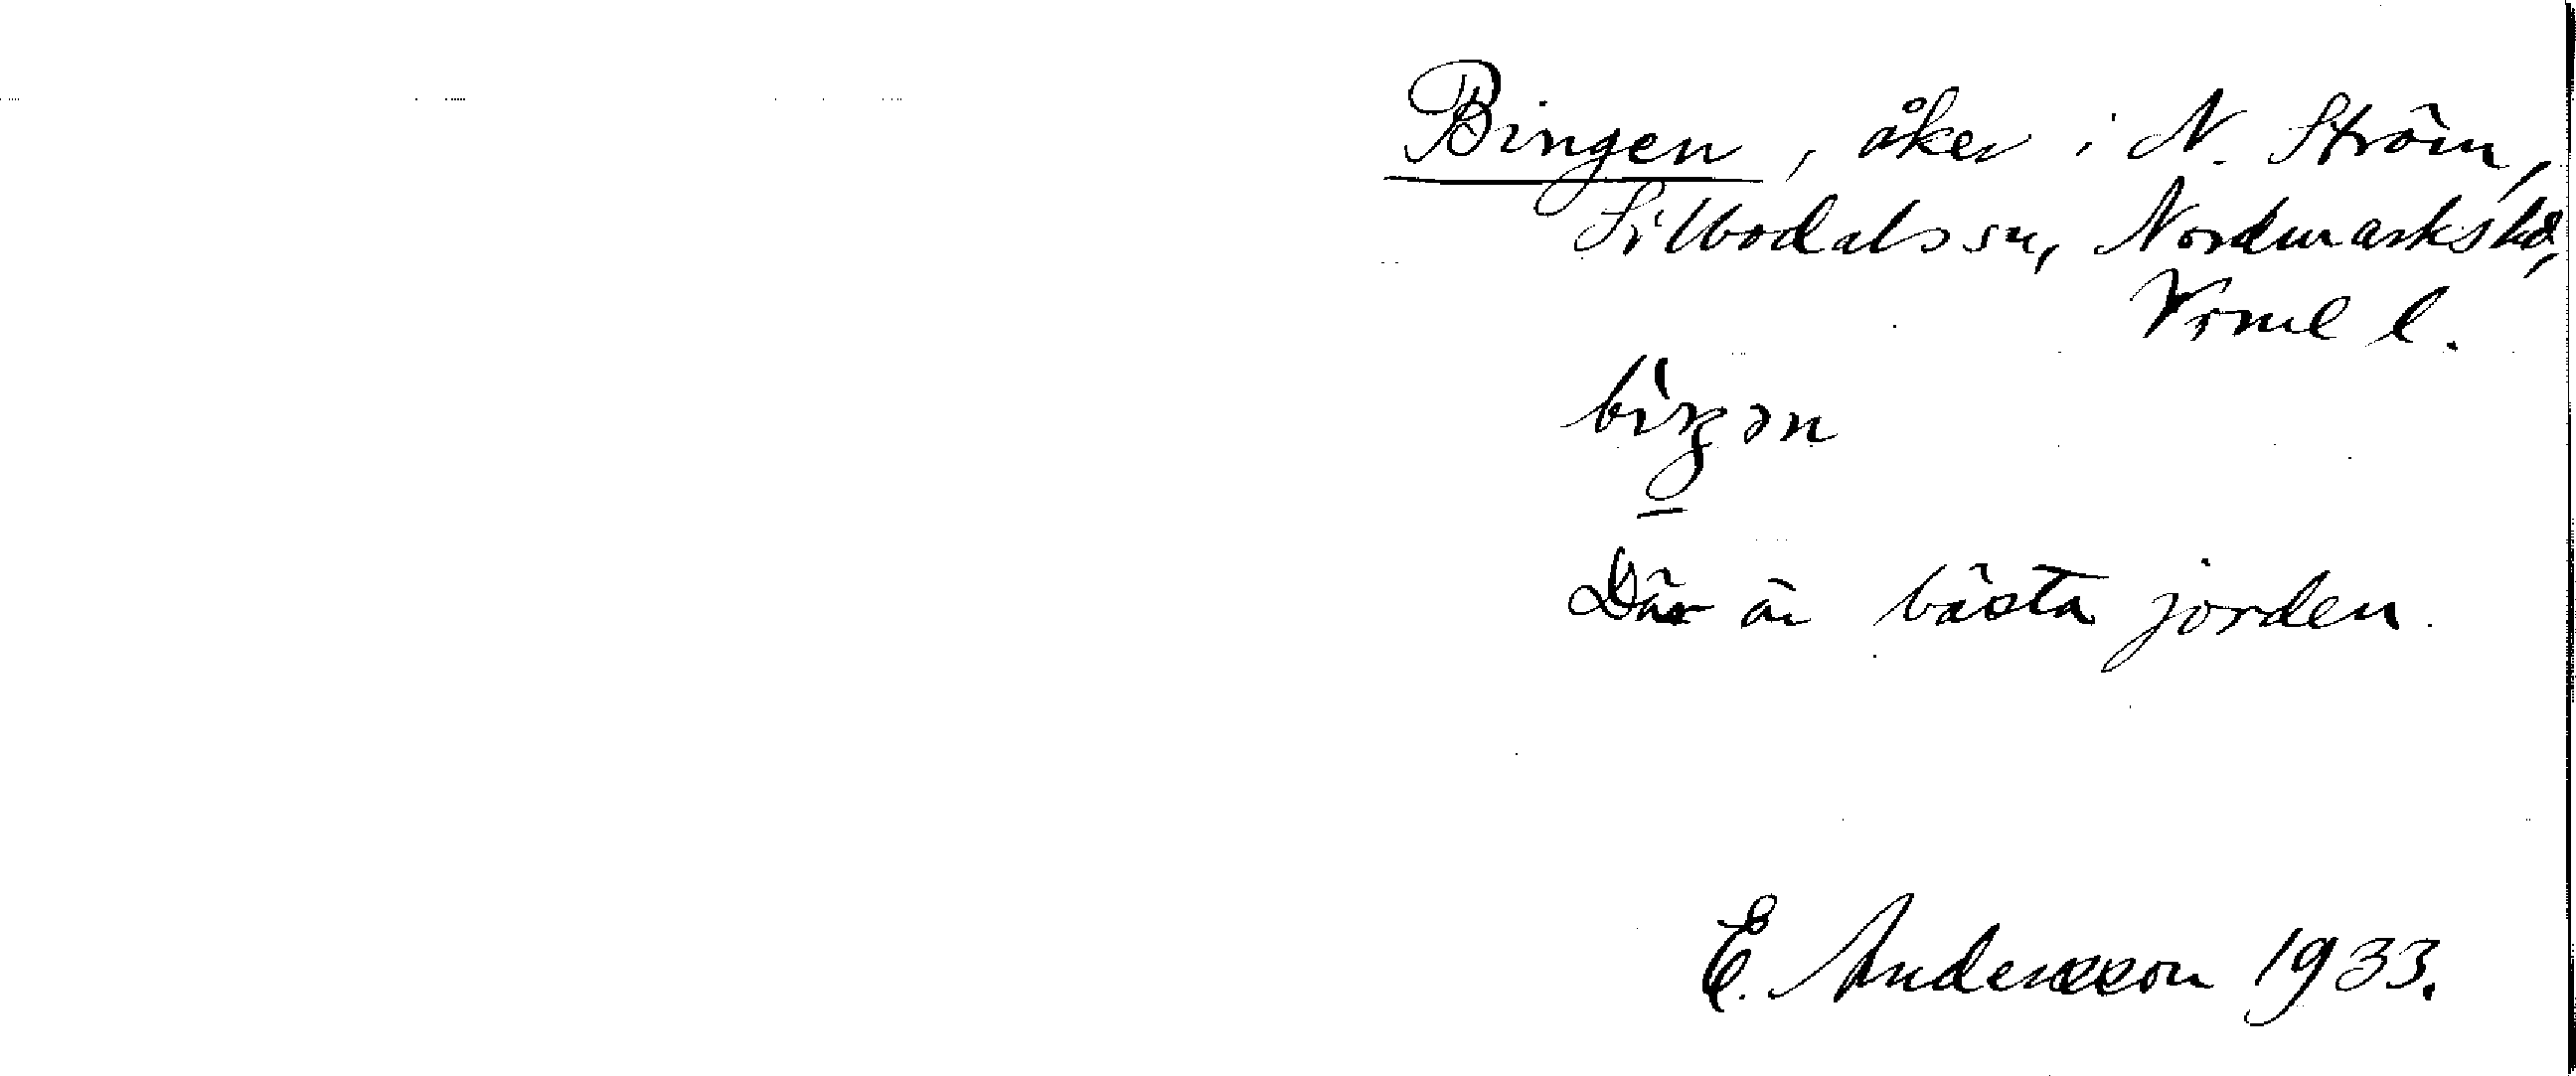 Bingen, åker i N. Ström,
Silbodals sn, Nordmarks hd,
Vrml l.
bìŋən
Där är bästa jorden.
E. Andersson 1933.